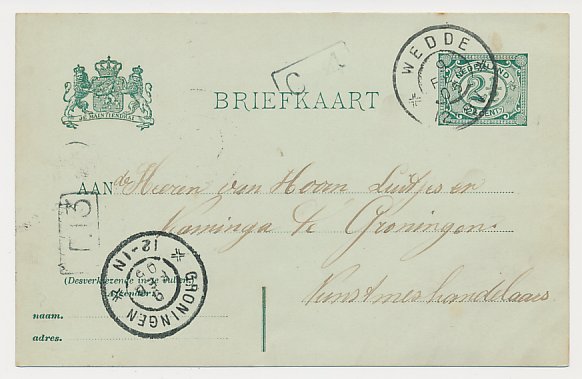 WEDDE
JE MAINTIENDRAI
NEDERLAND
2½
CENT
BRIEFKAART
C
AAN de Heeren van Hoorn Luitjes en
Kaminga te Groningen
Kunstmesthandelaars
F 3
GRONINGEN
12-1N
(Desverkiezende in te vullen)
Afzender:
naam.
adres.